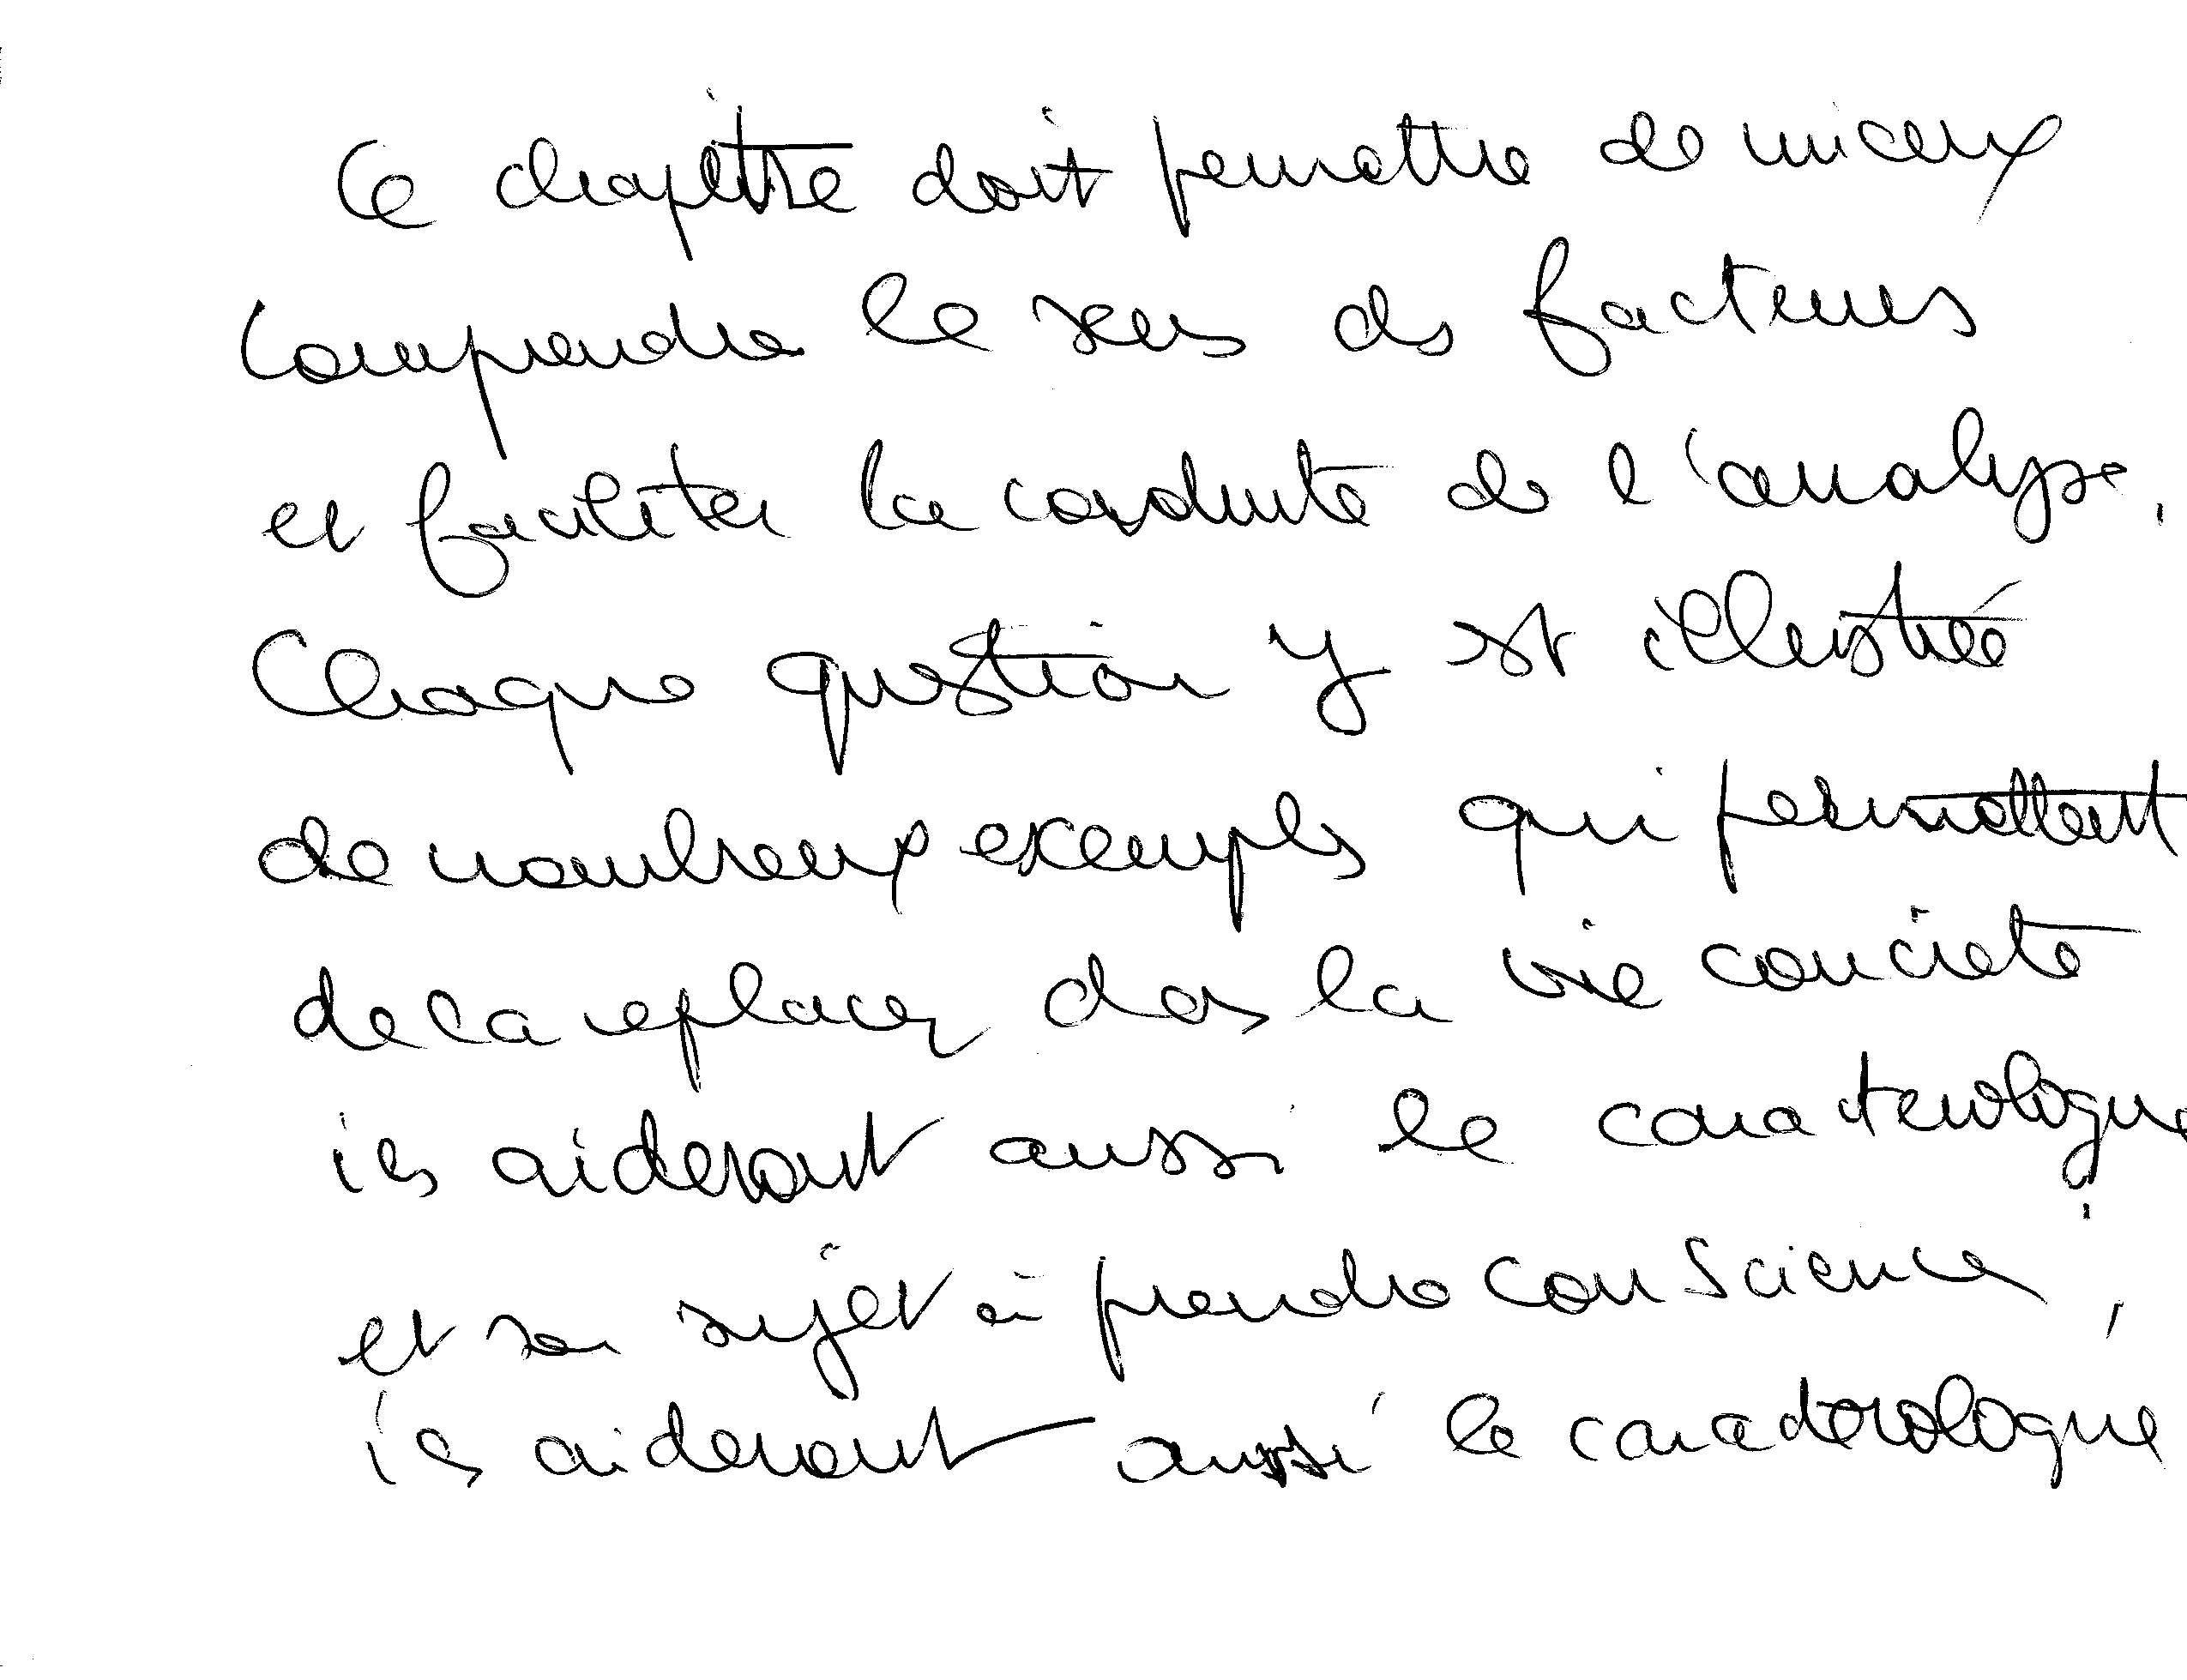 Ce chapitre doit permettre de mieux
comprendre le sens des facteurs
et faciliter la conduite de l'analyse.
Chaque question y est illustrée
de nombreux exemples qui permettent
de la replacer dans la vie concrète
ils aideront aussi le caractérologue
et son sujet à prendre conscience,
ils aideront aussi le caractérologue